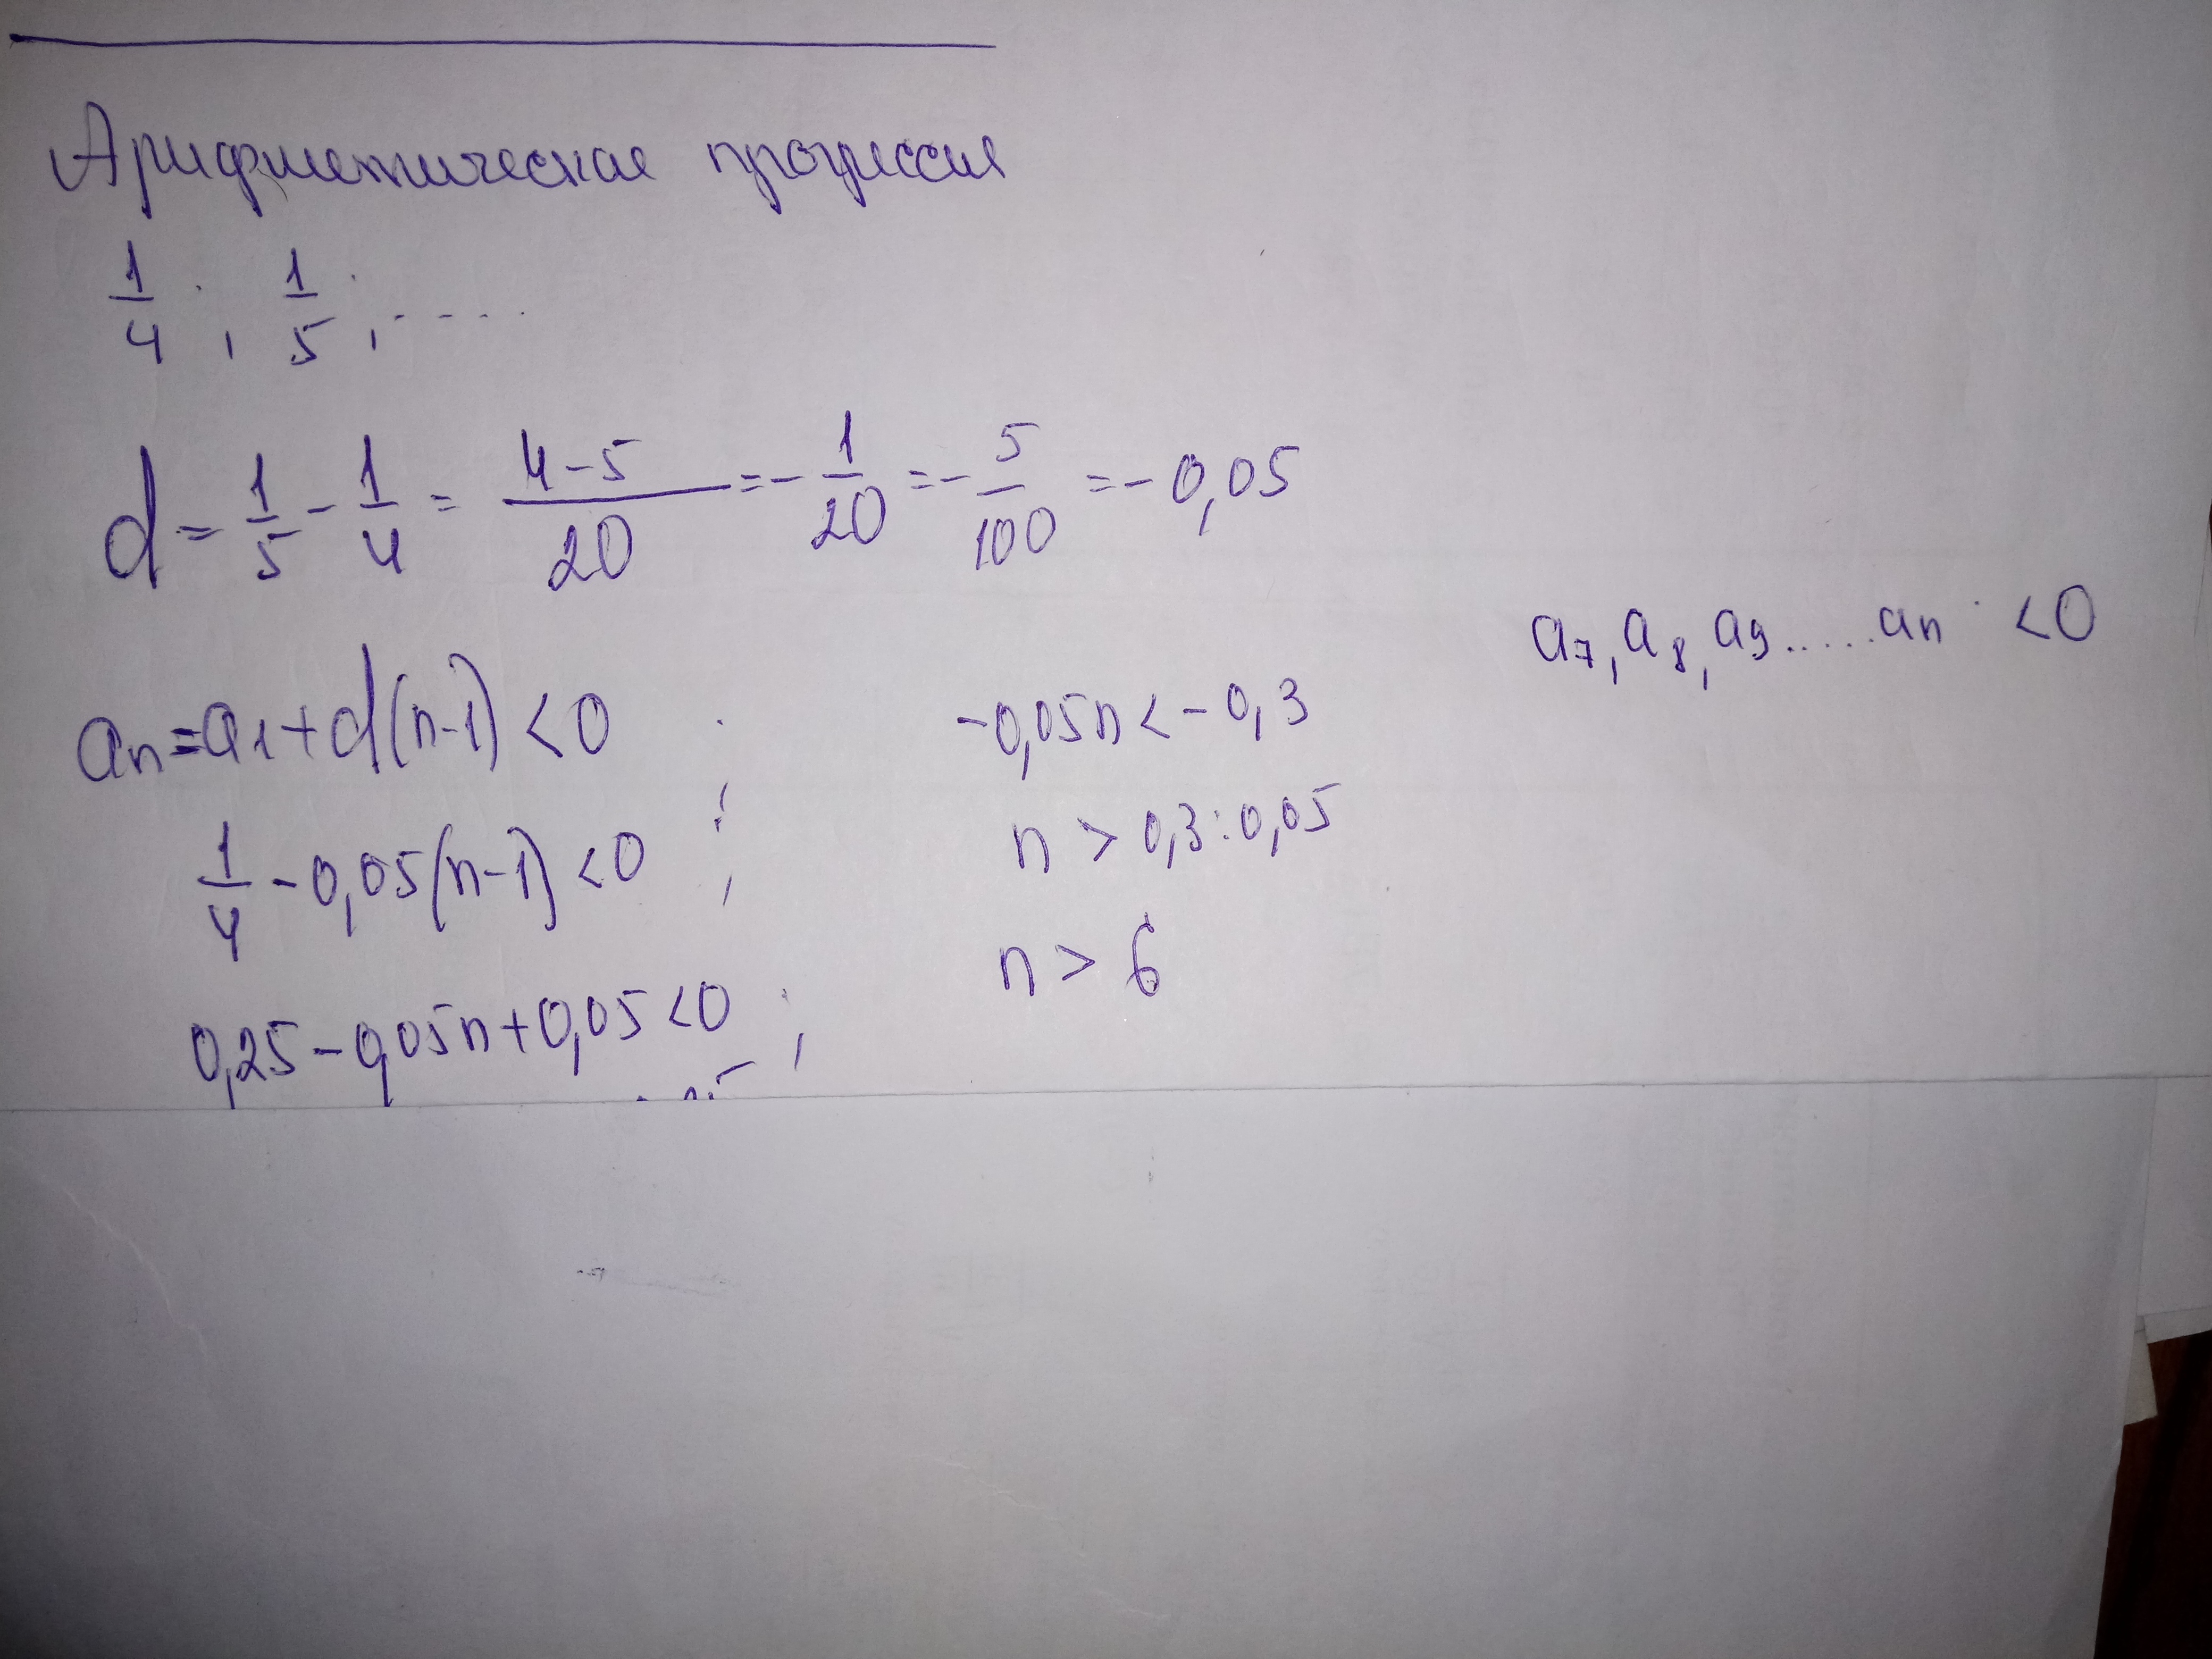 Арифметическая прогрессия
1/4, 1/5, ....
d = 1/5 - 1/4 = (4-5)/20 = - 1/20 = - 5/100 = - 0,05
an = a1 + d(n-1) < 0
1/4 - 0,05(n-1) < 0 ;
0,25 - 0,05n + 0,05 < 0 ;
-0,05n < - 0,3
n > 0,3 : 0,05
n > 6
a7, a8, a9 ..... an < 0